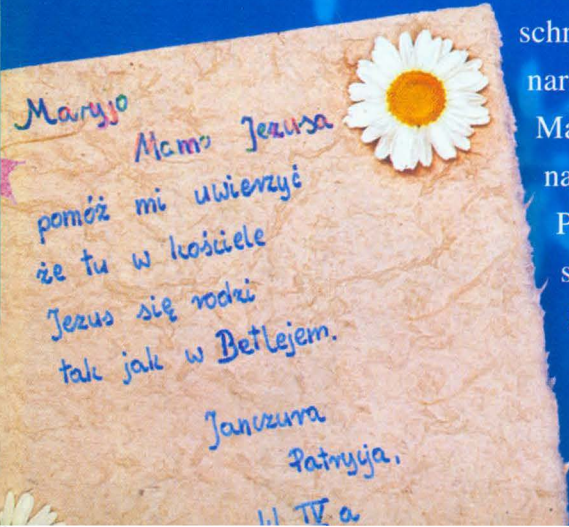 Maryjo
Mamo Jezusa
pomóż mi uwierzyć
że tu w kościele
Jezus się rodzi
tak jak w Betlejem.
Janczura
Patrycja,
IV a
schr
nar
Ma
na
P
s